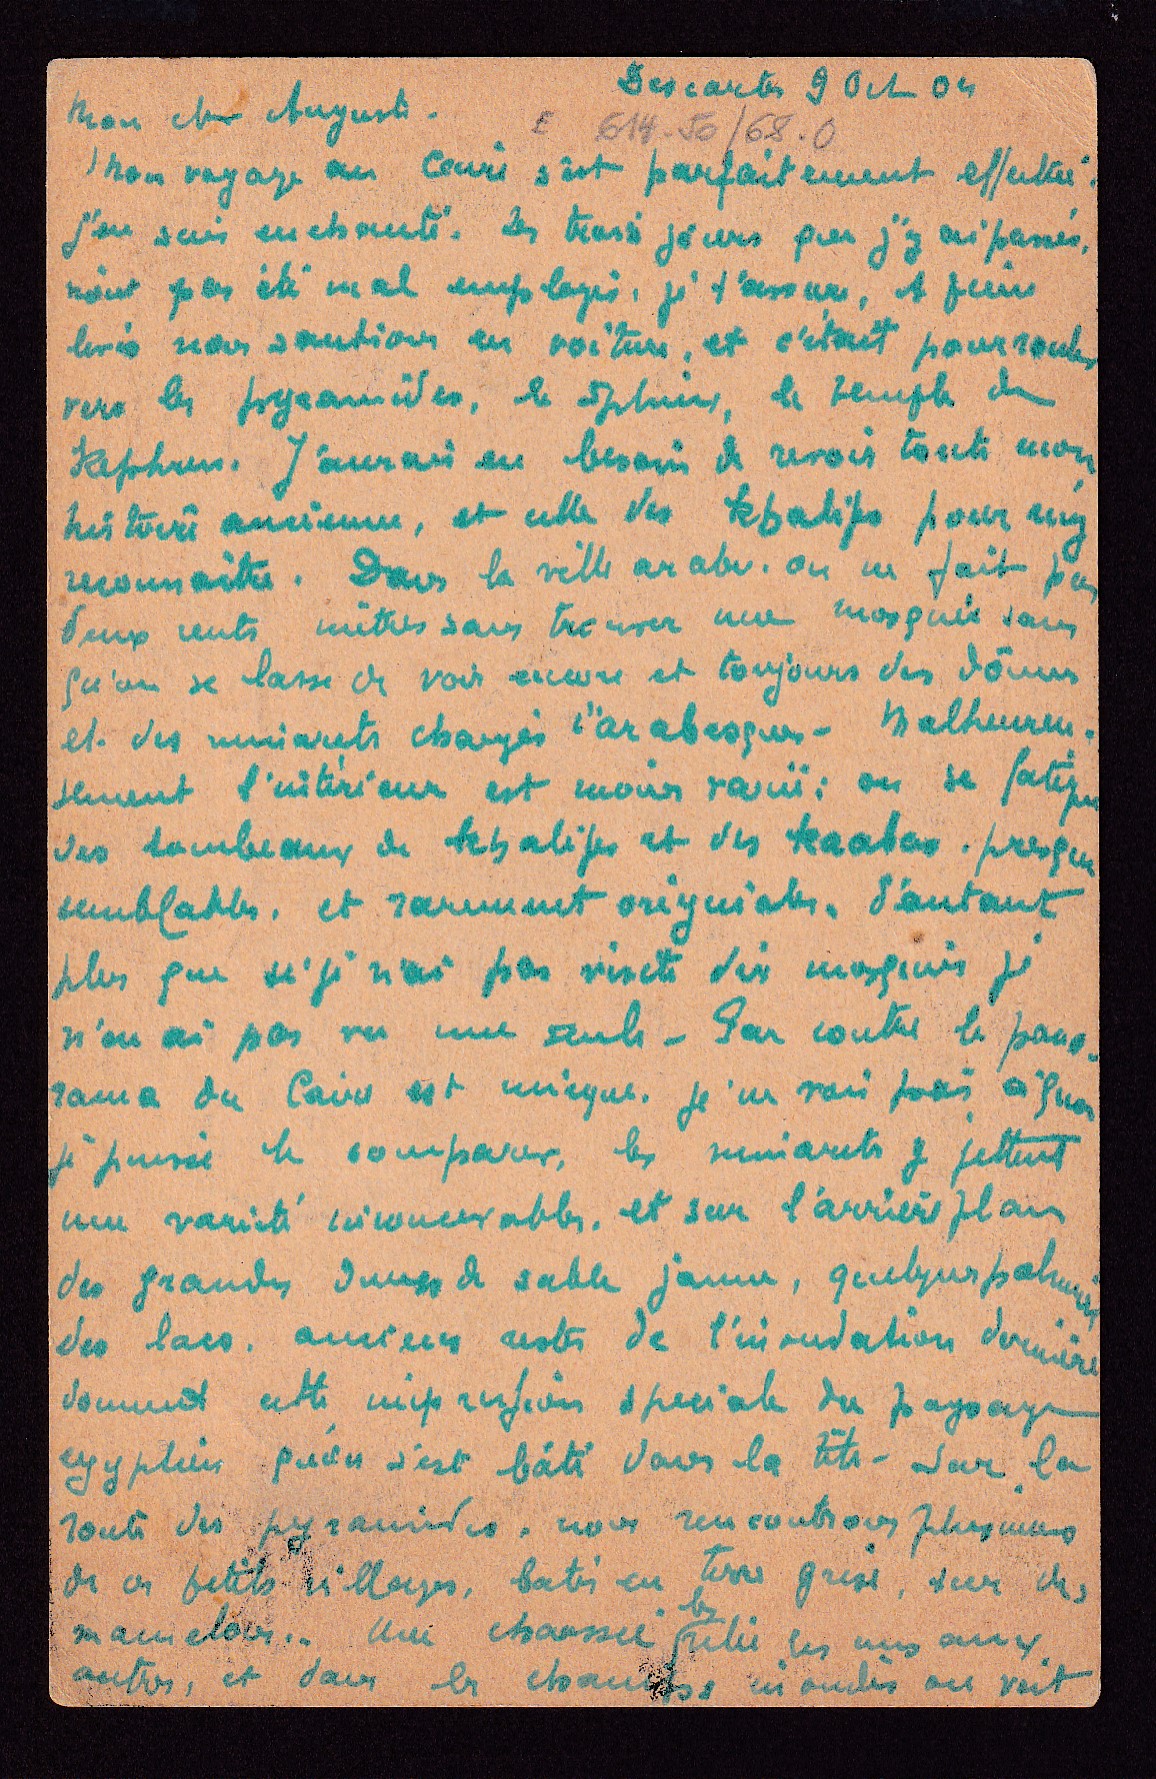 Descartes 9 Oct 04
Mon cher Auguste.
E 614.50/68.0
Mon voyage au Caire s'est parfaitement effectué.
j'en suis enchanté. Les trois jours que j'y ai passés,
n'ont pas été mal employés, je t'assure, A peine
levés nous sautions en voiture, et c'était pour rouler
vers les pyramides, le sphinx, le temple de
Kephren. J'aurais eu besoin de revoir toute mon
histoire ancienne, et celle des Khalifs pour m'y
reconnaitre. Dans la ville arabe. on ne fait pas
deux cents mètres sans trouver une mosquée sans
qu'on se lasse de voir encore et toujours des dômes
et des minarets chargés d'arabesques - Malheureu-
sement l'intérieur est moins varié: on se fatigue
des tombeaux de Khalifes et des Kaabas. presque
semblables. et rarement originales. d'autant
plus que si je n'ai pas visité dix mosquées je
n'en ai pas vu une seule - Par contre le pano-
rama du Caire est unique. je ne vois pas à quoi
je puisse le comparer, les minarets y jettent
une varieté inconcevable. et sur l'arrière plan
des grandes dunes de sable jaune, quelques palmiers
des lacs. anciens restes de l'inondation dernière
donnent cette impression speciale du paysage
egyptien qu'on s'est bâti dans la tête - Sur la
route des pyramides. nous rencontrons plusieurs
de ces petits villages, batis en terre grise, sur des
mamelons.. Une chaussée les relie les uns aux
autres, et dans les champs inondés on voit